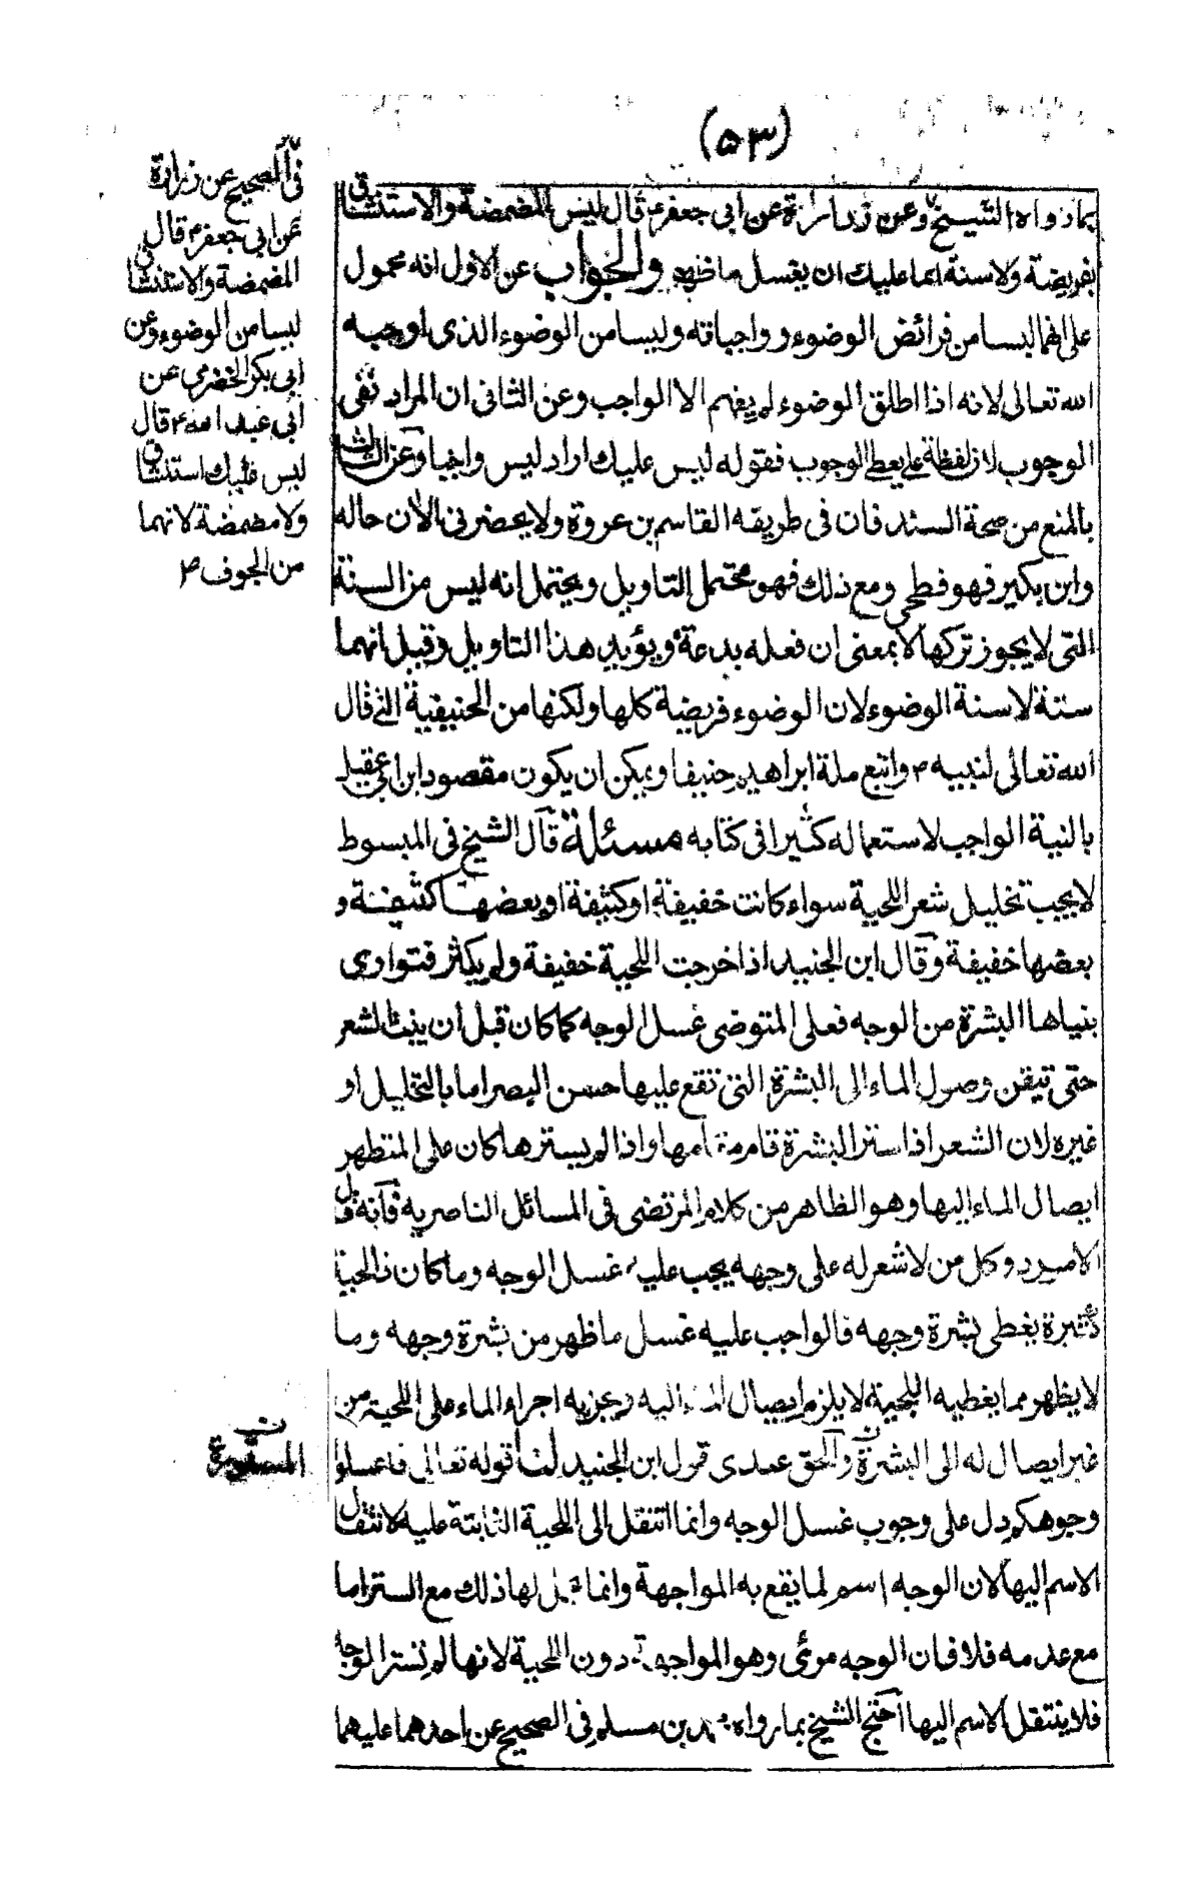 (۵۳)
بما رواه الشيخ وعن زرارة عن ابى جعفر ع قال ليس المضمضة والاستنشاق
بفريضة ولا سنة انما عليك ان يغسل ما ظهر والجواب عن الاول انه محمول
على انهما ليسا من فرائض الوضوء وواجباته وليسا من الوضوء الذى اوجبه
الله تعالى لانه اذا اطلق الوضوء لم يفهم الا الواجب وعن الثانى ان المراد نفى
الوجوب لان لفظة على يعطى الوجوب فقوله ليس عليك اراد ليس واجبا وعن الثالث
بالمنع من صحة السند فان فى طريقه القاسم بن عروة ولا يحضرنى الان حاله
وابن بكير فهو فطحى ومع ذلك فهو محتمل التاويل ويحتمل انه ليس من السنة
التى لا يجوز تركها لا بمعنى ان فعله بدعة ويؤيد هذا التاويل وقيل انهما
سنة لا سنة الوضوء لان الوضوء فريضة كلها ولكنها من الحنيفية التى قال
الله تعالى لنبيه ص واتبع ملة ابراهيم حنيفا ويمكن ان يكون مقصود ابن ابى عقيل
بالنية الواجب لاستعماله كثيرا فى كتابه مسئلة قال الشيخ فى المبسوط
لا يجب تخليل شعر اللحية سواء كانت خفيفة او كثيفة او بعضها كثيفة و
بعضها خفيفة وقال ابن الجنيد اذا خرجت اللحية خفيفة ولم يكثر فتوارى
بنباتها البشرة من الوجه فعلى المتوضى غسل الوجه كما كان قبل ان ينبت الشعر
حتى تيقن وصول الماء الى البشرة التى تقع عليها حسن البصر اما بالتخليل او
غيره لان الشعر اذا ستر البشرة قام مقامها واذا لم يسترها كان على المتطهر
ايصال الماء اليها وهو الظاهر من كلام المرتضى فى المسائل الناصريه فانه قال
الامرد وكل من لا شعر له على وجهه يجب عليه غسل الوجه وما كان ذا لحية
كثيرة يغطى بشرة وجهه فالواجب عليه غسل ما ظهر من بشرة وجهه وما
لا يظهر مما يغطيه اللحية لا يلزم ايصال الماء اليه ويجزيه اجراء الماء على اللحية من
غير ايصال له الى البشرة والحق عندى قول ابن الجنيد لنا قوله تعالى فاغسلوا
وجوهكم دل على وجوب غسل الوجه وانما انتقل الى اللحية النابتة عليه لانتقال
الاسم اليها لان الوجه اسم لما يقع به المواجهة وانما يحصل لها ذلك مع الستر اما
مع عدمه فلا فان الوجه مرئى وهو المواجهة دون اللحية لانها لم تستر الوجه
فلا ينتقل الاسم اليها احتج الشيخ بما رواه محمد بن مسلم فى الصحيح عن احدهما عليهما
فى الصحيح عن زرارة
عن ابى جعفر ع قال
المضمضة والاستنشاق
ليسا من الوضوء وعن
ابى بكر الحضرمى عن
ابى عبد الله ع قال
ليس عليك استنشاق
ولا مضمضة لانهما
من الجوف ص
المستورة